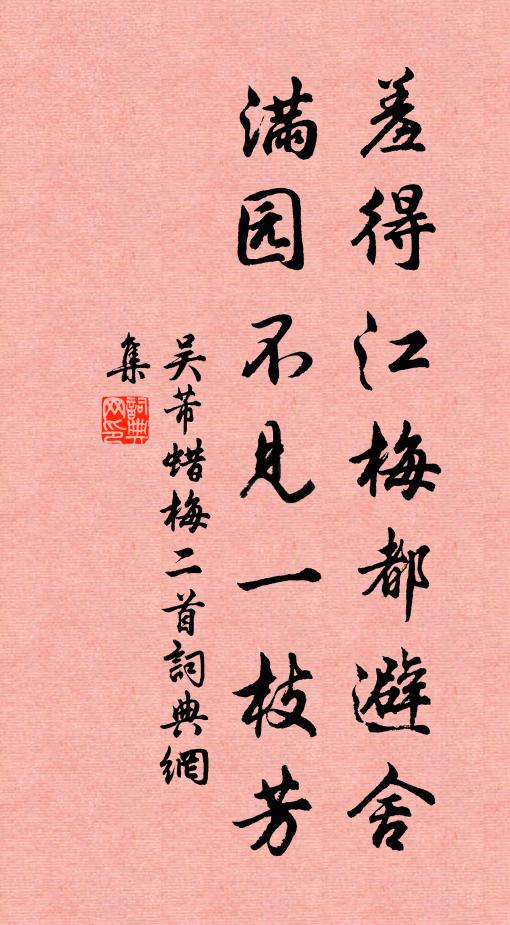 羞得江梅都避舍
满园不见一枝芳
吴芾蜡梅二首詞典網
集
詞典网印